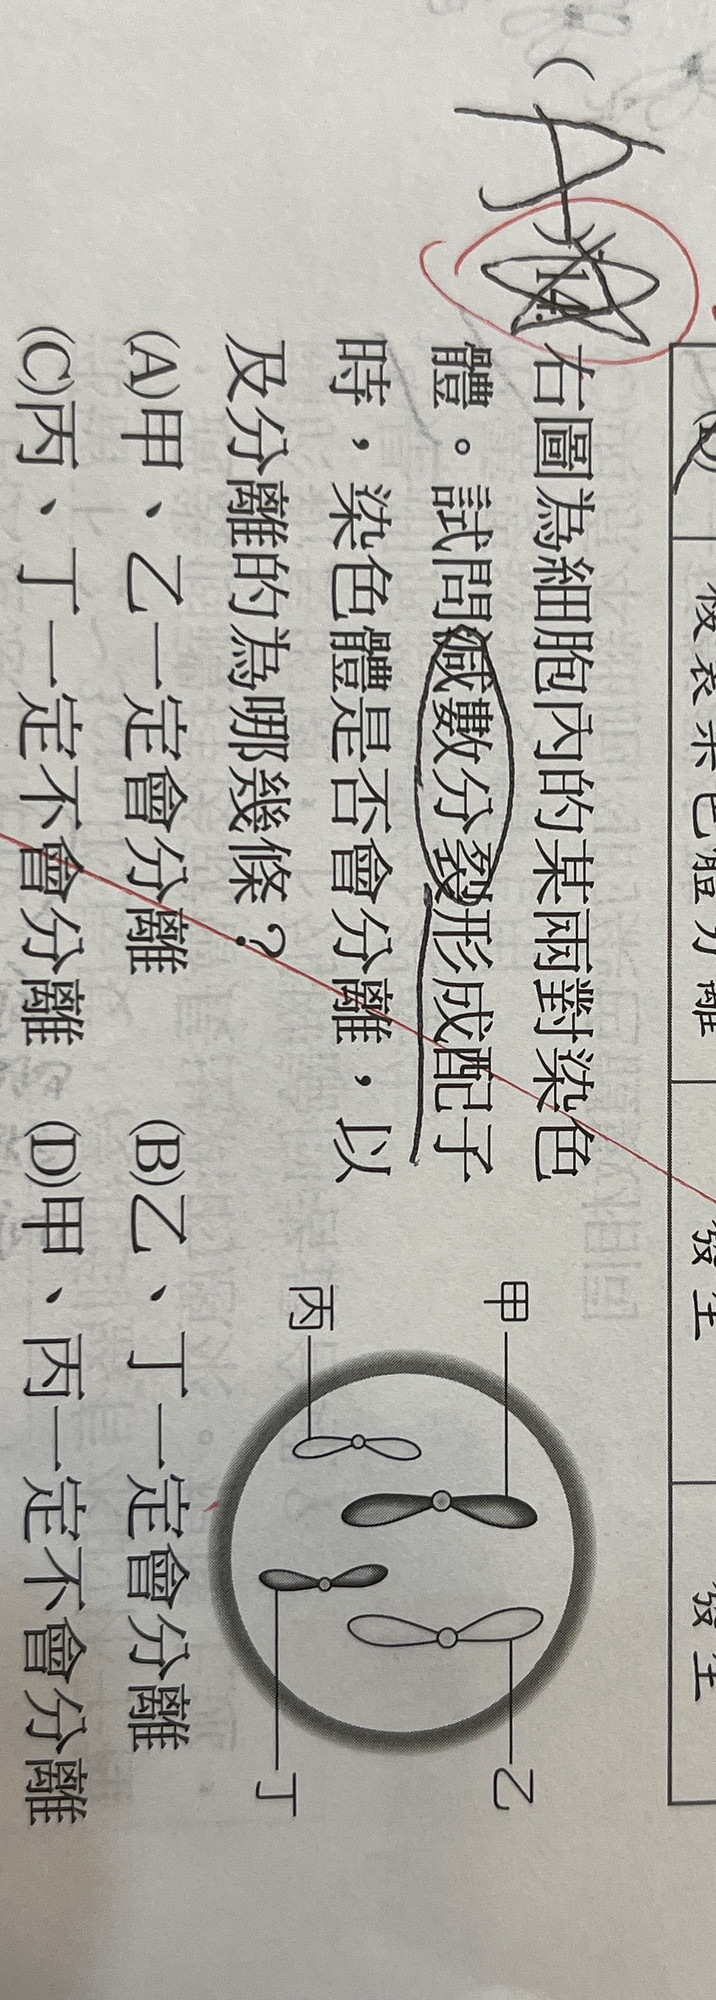 發生 發生
( A ) 14. 右圖為細胞內的某兩對染色
體。試問減數分裂形成配子
時,染色體是否會分離,以
及分離的為哪幾條?
(A)甲、乙一定會分離 (B)乙、丁一定會分離
(C)丙、丁一定不會分離 (D)甲、丙一定不會分離
甲
乙
丙
丁